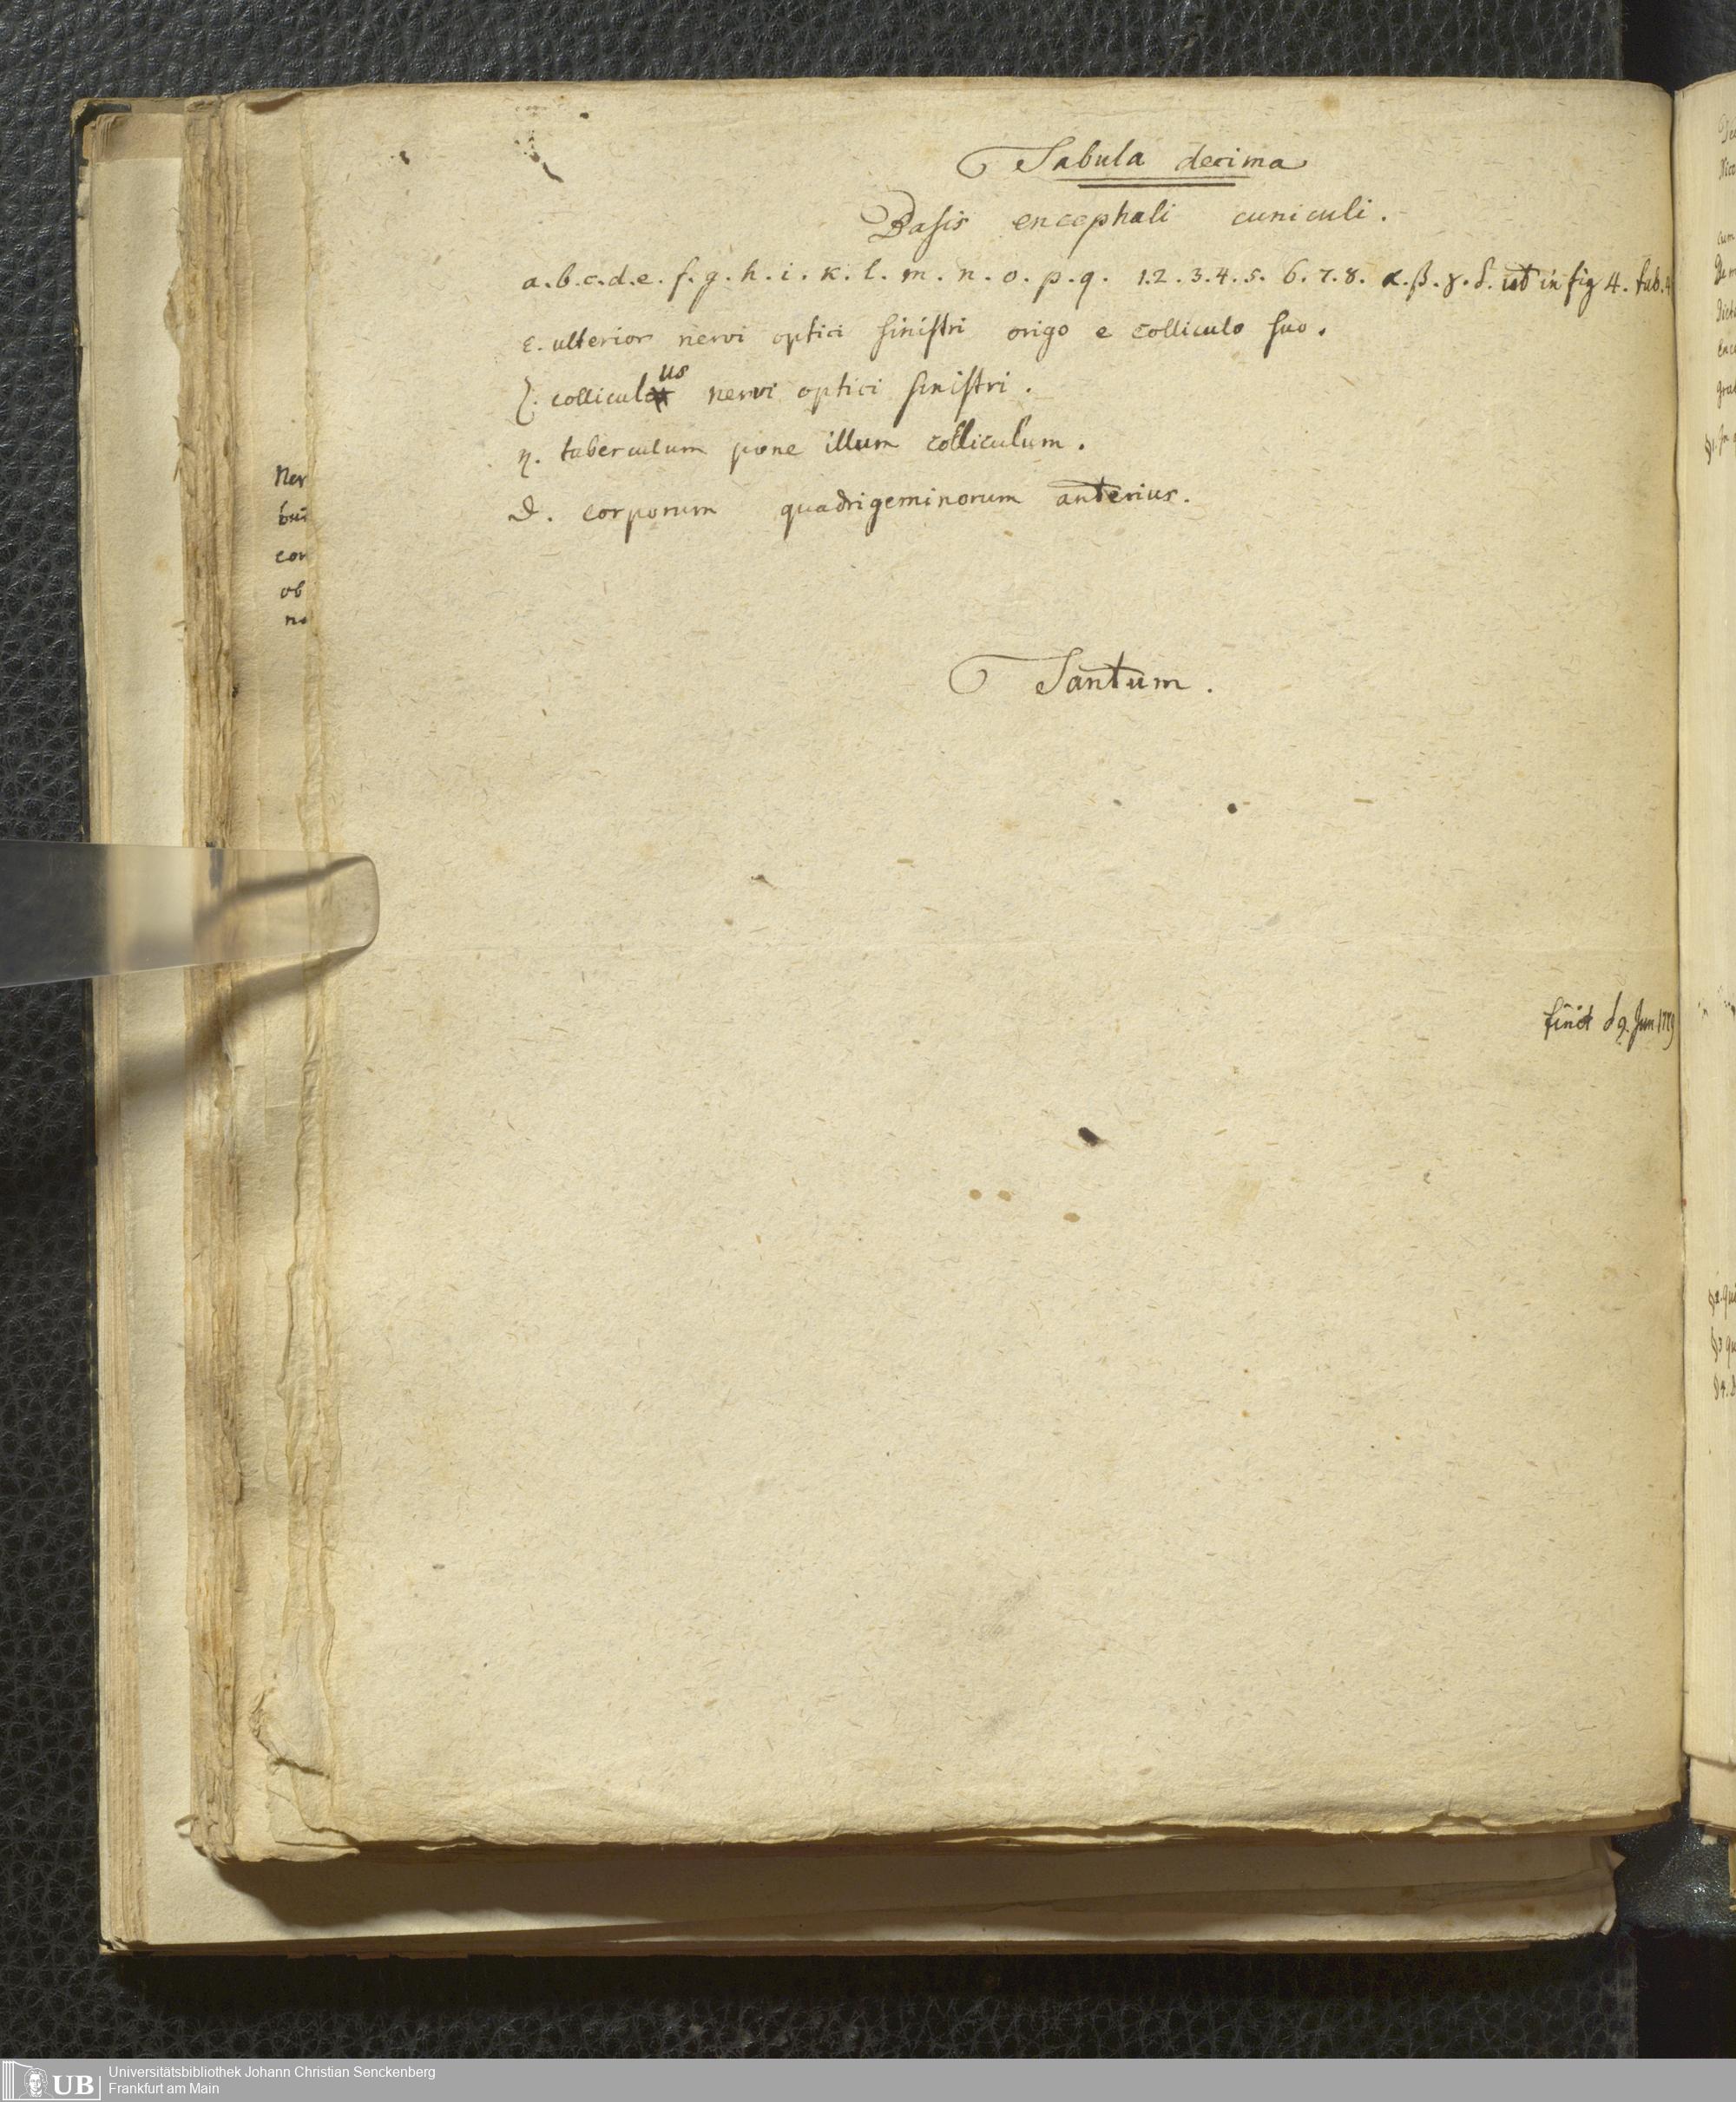 Tabula decima
Basis encephali cuniculi.
a. b. c. d. e. f. g. h. i. k. l. m. n. o. p. q. 1. 2. 3. 4. 5. 6. 7. 8. α. β. γ. δ. ut in fig 4. tab. 4
ε. ulterior nervi optici sinistri origo e colliculo suo.
ζ. colliculus nervi optici sinistri.
η. tuberculum pone illum colliculum.
ϑ. corporum quadrigeminorum anterius.
Ner
bu
cor
ob
Tantum.
finit d 9. Jun 1779
Universitätsbibliothek Johann Christian Senckenberg
Frankfurt am Main
UB